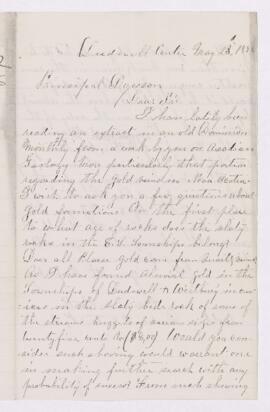 Dudswell Center May 28th 18
Principal Dawson
Dear Sir
I have lately been
reading an extract in an old Dominion
Monthly from a work by you on Acadian
Geology more particularly that portion
regarding the gold mines in Nova Scotia
I wish to ask you a few questions about
gold formations In the first place
to what age of rocks does the slaty
rocks in the E.S. Townships belong?
Does all Placer gold come from quartz veins
as I have found alluvial gold in the
Townships of Dudswell & Westbury in
on the slaty bed rock of some of
the streams nuggets of various sizes from
twenty five cents to ($8.00) Would you con-
sider such showing would warrant one
in making further search with any
probability of success? From such showing